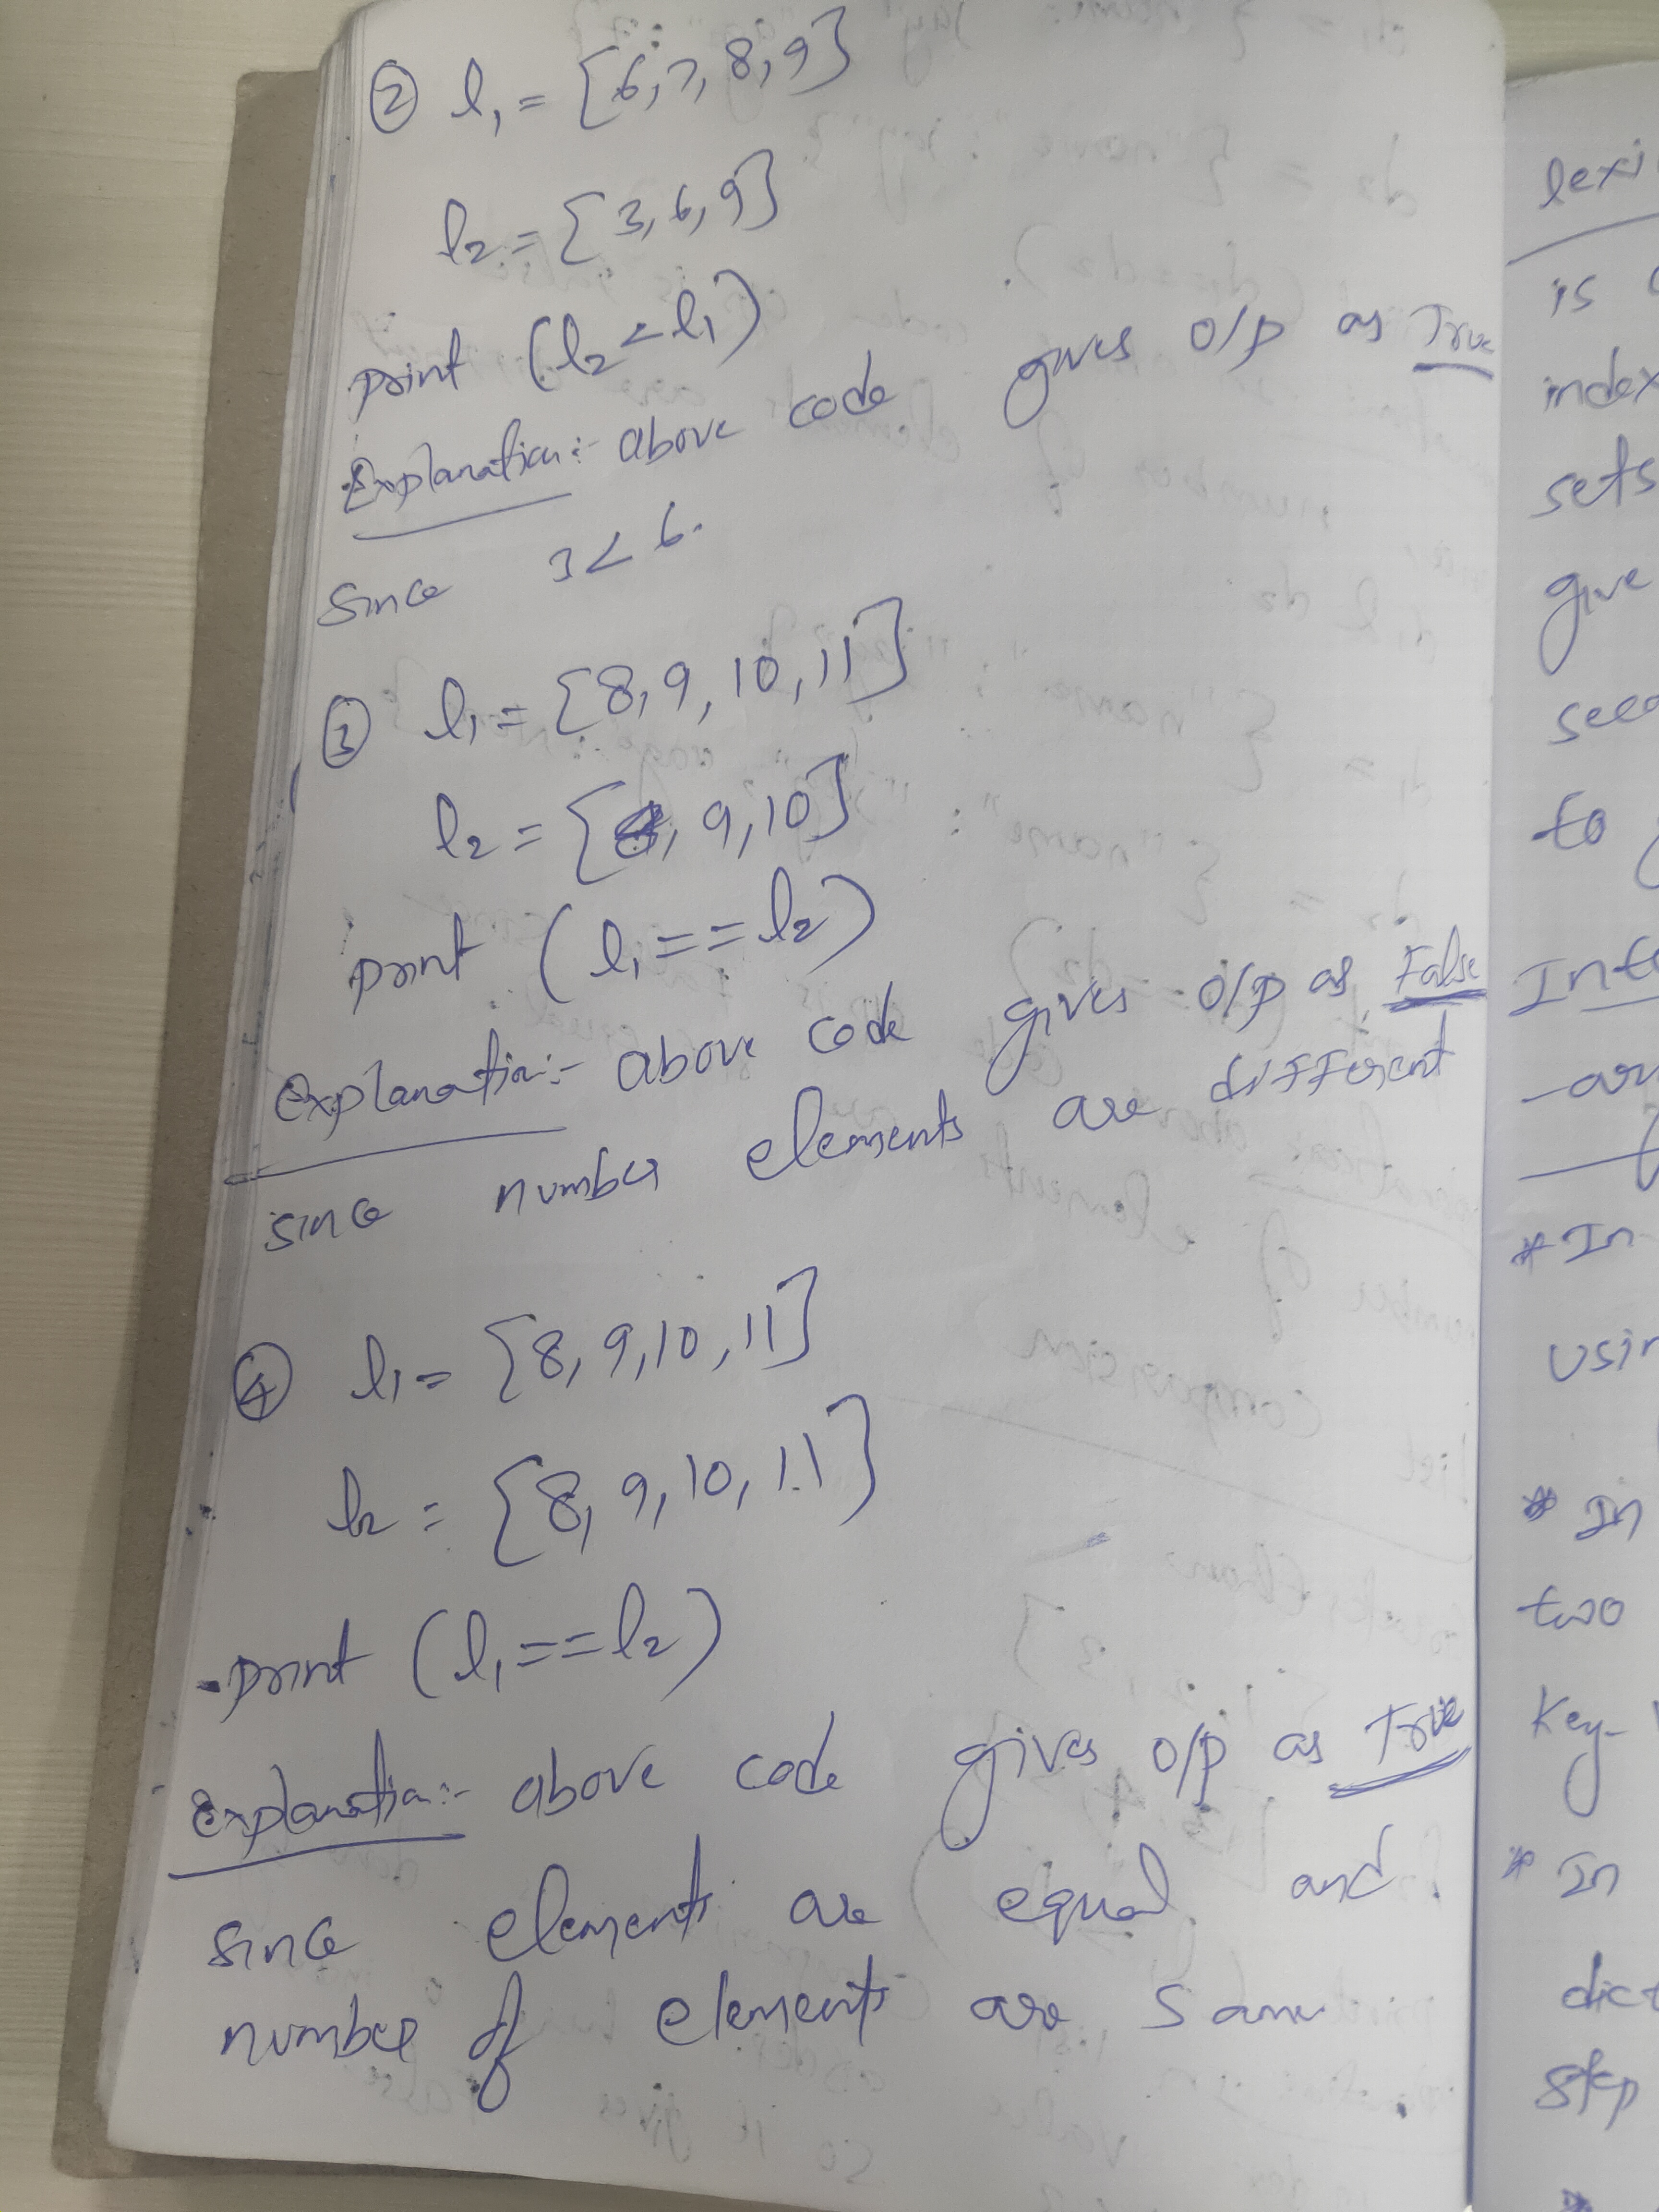 ② l₁ = [6, 7, 8, 9]
l₂ = [3, 6, 9]
print (l₂ < l₁)
Explanation:- above code gives o/p as True
Since 3 < 6.
③ l₁ = [8, 9, 10, 11]
l₂ = [8, 9, 10]
print (l₁ == l₂)
Explanation:- above code gives o/p as False
since number elements are different
④ l₁ = [8, 9, 10, 11]
l₂ = [8, 9, 10, 11]
print (l₁ == l₂)
Explanation:- above code gives o/p as True
since elements are equal and
number of elements are same
lexi
is
index
sets
give
to
Inte
* In
usin
* In
two
Key-
* In
dict
step